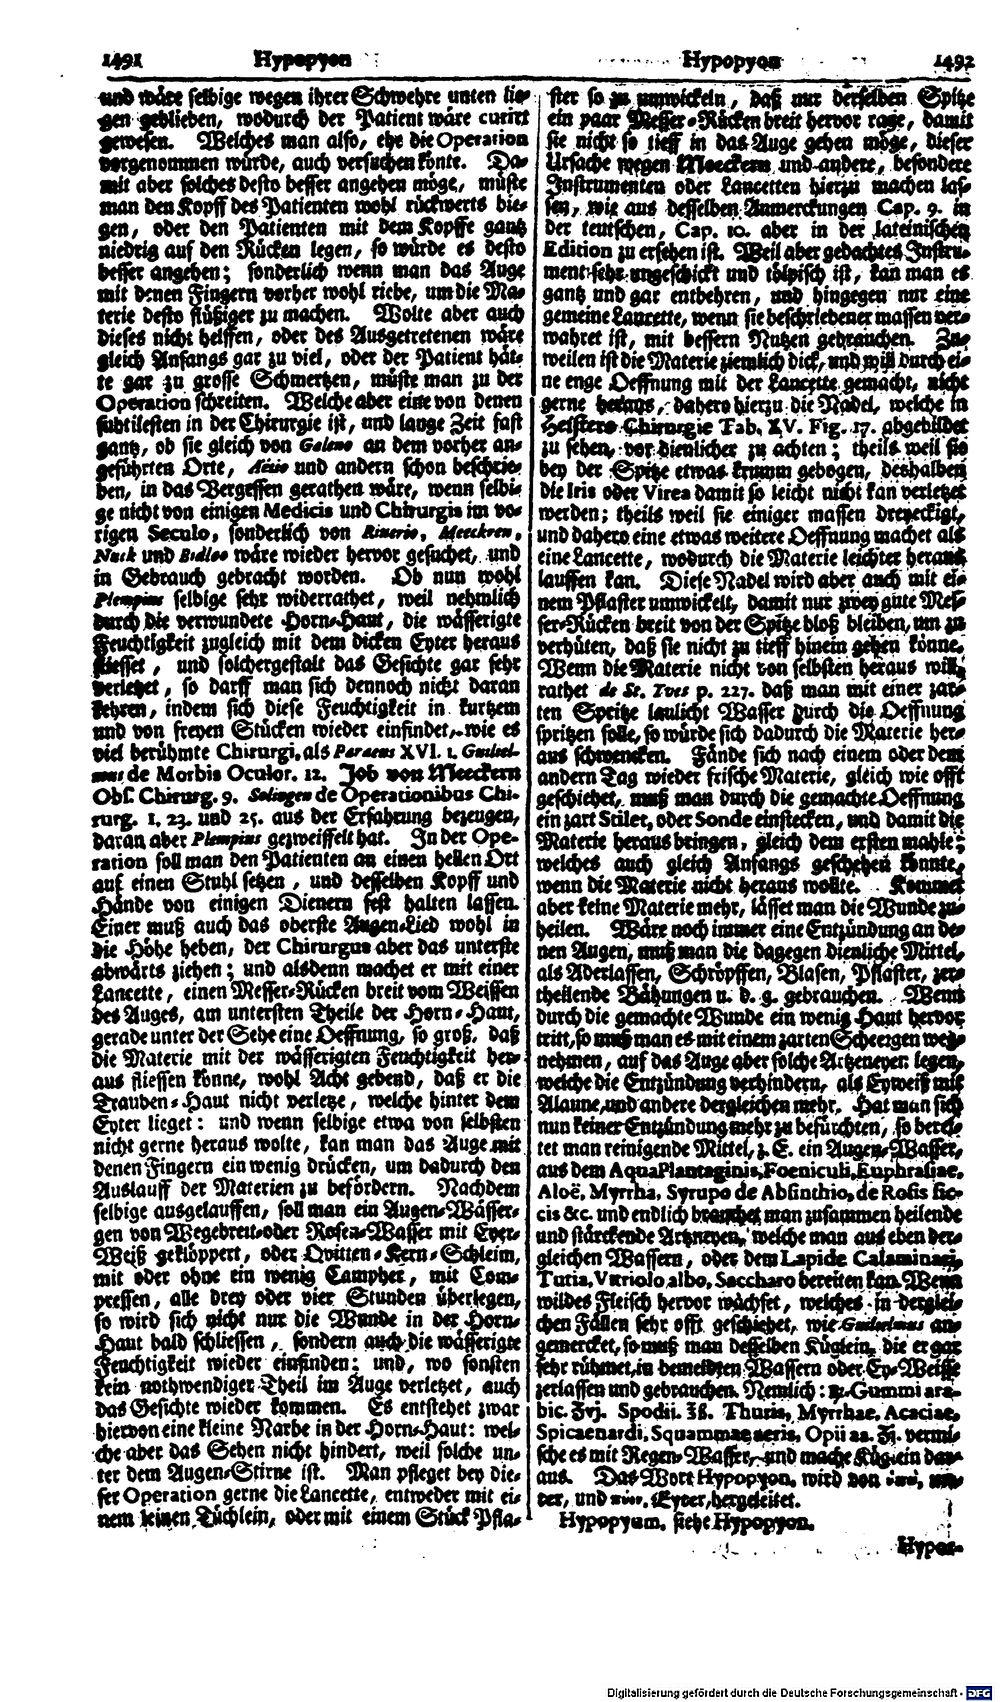 1491 Hypopyon
Hypopyon 1492
und wäre selbige wegen ihrer Schwehre unten lie-
gen geblieben, wodurch der Patient wäre curirt
gewesen. Welches man also, ehe die Operation
vorgenommen würde, auch versuchen könte. Da-
mit aber solches desto besser angehen möge, müste
man den Kopff des Patienten wohl rückwerts bie-
gen, oder den Patienten mit dem Kopffe gantz
niedrig auf den Rücken legen, so würde es desto
besser angehen; sonderlich wenn man das Auge
mit denen Fingern vorher wohl riebe, um die Ma-
terie desto flüßiger zu machen. Wolte aber auch
dieses nicht helffen, oder des Ausgetretenen wäre
gleich Anfangs gar zu viel, oder der Patient hät-
te gar zu grosse Schmertzen, müste man zu der
Operation schreiten. Welche aber eine von denen
subtilesten in der Chirurgie ist, und lange Zeit fast
gantz, ob sie gleich von Galeno an dem vorher an-
geführten Orte, Aëtio und andern schon beschrie-
ben, in das Vergessen gerathen wäre, wenn selbi-
ge nicht von einigen Medicis und Chirurgis im vo-
rigen Seculo, sonderlich von Riverio, Meeckren,
Nuck und Bidloo wäre wieder hervor gesuchet, und
in Gebrauch gebracht worden. Ob nun wohl
Plempius selbige sehr widerrathet, weil nehmlich
durch die verwundete Horn-Haut, die wässerigte
Feuchtigkeit zugleich mit dem dicken Eyter heraus
fliesset, und solchergestalt das Gesichte gar sehr
verletzet, so darff man sich dennoch nicht daran
kehren, indem sich diese Feuchtigkeit in kurtzem
und von freyen Stücken wieder einfindet, wie es
viel berühmte Chirurgi, als Paraeus XVI. 1. Guiliel-
mus de Morbis Oculor. 12. Job von Meeckern
Obs. Chirurg. 9. Solingen de Operationibus Chi-
rurg. 1. 23. und 25. aus der Erfahrung bezeugen,
daran aber Plempius gezweiffelt hat. In der Ope-
ration soll man den Patienten an einen hellen Ort
auf einen Stuhl setzen, und desselben Kopff und
Hände von einigen Dienern fest halten lassen.
Einer muß auch das oberste Augen-Lied wohl in
die Höhe heben, der Chirurgus aber das unterste
abwärts ziehen; und alsdenn machet er mit einer
Lancette, einen Messer-Rücken breit vom Weissen
des Auges, am untersten Theile der Horn-Haut,
gerade unter der Sehe eine Oeffnung, so groß, daß
die Materie mit der wässerigten Feuchtigkeit her-
aus fliessen könne, wohl Acht gebend, daß er die
Trauben-Haut nicht verletze, welche hinter dem
Eyter lieget: und wenn selbige etwa von selbsten
nicht gerne heraus wolte, kan man das Auge mit
denen Fingern ein wenig drücken, um dadurch den
Auslauff der Materien zu befördern. Nachdem
selbige ausgelauffen, soll man ein Augen-Wässer-
gen von Wegebreit-oder Rosen-Wasser mit Eyer-
Weiß geklöppert, oder Qvitten-Kern-Schleim,
mit oder ohne ein wenig Campher, mit Com-
pressen, alle drey oder vier Stunden überlegen,
so wird sich nicht nur die Wunde in der Horn-
Haut bald schliessen, sondern auch die wässerigte
Feuchtigkeit wieder einfinden; und, wo sonsten
kein nothwendiger Theil im Auge verletzet, auch
das Gesichte wieder kommen. Es entstehet zwar
hiervon eine kleine Narbe in der Horn-Haut: wel-
che aber das Sehen nicht hindert, weil solche un-
ter dem Augen-Stirne ist. Man pfleget bey die-
ser Operation gerne die Lancette, entweder mit ei-
nem leinen Tüchlein, oder mit einem Stück Pfla-
ster so zu umwickeln, daß nur derselben Spitze
ein paar Messer-Rücken breit hervor rage, damit
sie nicht so tieff in das Auge gehen möge, dieser
Ursache wegen Meeckern und andere, besondere
Instrumenten oder Lancetten hierzu machen las-
sen, wie aus desselben Anmerckungen Cap. 9. in
der teutschen, Cap. 10. aber in der lateinischen
Edition zu ersehen ist. Weil aber gedachtes Instru-
ment sehr ungeschickt und tölpisch ist, kan man es
gantz und gar entbehren, und hingegen nur eine
gemeine Lancette, wenn sie beschriebener massen ver-
wahret ist, mit bessern Nutzen gebrauchen. Zu-
weilen ist die Materie ziemlich dick, und will durch ei-
ne enge Oeffnung mit der Lancette gemacht, nicht
gerne heraus, dahero hierzu die Nadel, welche in
Heisters Chirurgie Tab. XV. Fig. 17. abgebildet
zu sehen, vor dienlicher zu achten; theils weil sie
bey der Spitze etwas krumm gebogen, deshalben
die Iris oder Virea damit so leicht nicht kan verletzet
werden; theils weil sie einiger massen dreyeckigt,
und dahero eine etwas weitere Oeffnung machet als
eine Lancette, wodurch die Materie leichter heraus
lauffen kan. Diese Nadel wird aber auch mit ei-
nem Pflaster umwickelt, damit nur zwey gute Mes-
ser-Rücken breit von der Spitze bloß bleiben, um zu
verhüten, daß sie nicht zu tieff hinein gehen könne.
Wenn die Materie nicht von selbsten heraus will,
rathet de St. Yves p. 227. daß man mit einer zar-
ten Spritze laulicht Wasser durch die Oeffnung
spritzen solle, so würde sich dadurch die Materie her-
aus schwencken. Fände sich nach einem oder dem
andern Tag wieder frische Materie, gleich wie offt
geschiehet, muß man durch die gemachte Oeffnung
ein zart Stilet, oder Sonde einstecken, und damit die
Materie heraus bringen, gleich dem ersten mahle;
welches auch gleich Anfangs geschehen könnte,
wenn die Materie nicht heraus wollte. Kommet
aber keine Materie mehr, lässet man die Wunde zu-
heilen. Wäre noch immer eine Entzündung an de-
nen Augen, muß man die dagegen dienliche Mittel,
als Aderlassen, Schröpffen, Blasen, Pflaster, zer-
theilende Bähungen u. d. g. gebrauchen. Wenn
durch die gemachte Wunde ein wenig Haut hervor
tritt, so muß man es mit einem zarten Scheergen weg-
nehmen, auf das Auge aber solche Artzeneyen legen,
welche die Entzündung verhindern, als Eyweiß mit
Alaune, und andere dergleichen mehr. Hat man sich
nun keiner Entzündung mehr zu befürchten, so berei-
tet man reinigende Mittel, z. E. ein Augen-Wasser,
aus dem Aqua Plantaginis, Foeniculi, Euphrasiae,
Aloë, Myrrha, Syrupo de Absinthio, de Rosis sic-
cis &c. und endlich brauchet man zusammen heilende
und stärckende Artzneyen, welche man aus eben der-
gleichen Wassern, oder dem Lapide Calaminari,
Tutia, Vitriolo albo, Saccharo bereiten kan. Wenn
wildes Fleisch hervor wächset, welches in derglei-
chen Fällen sehr offt geschiehet, wie Guilielmus an-
gemercket, so muß man desselben Küglein, die er gar
sehr rühmet, in bemeldten Wassern oder Ey-Weiße
zerlassen und gebrauchen. Nemlich: ℞. Gummi ara-
bic. ʒvj. Spodii. ℥ß. Thuris, Myrrhae, Acaciae,
Spicaenardi, Squammae aeris, Opii aa. ʒj. vermi-
sche es mit Regen-Wasser, und mache Küglein dar-
aus. Das Wort Hypopyon, wird von ὑπὸ, un-
ter, und πύον, Eyter, hergeleitet.
Hypopyum, siehe Hypopyon.
Hypor-
Digitalisierung gefördert durch die Deutsche Forschungsgemeinschaft - DFG